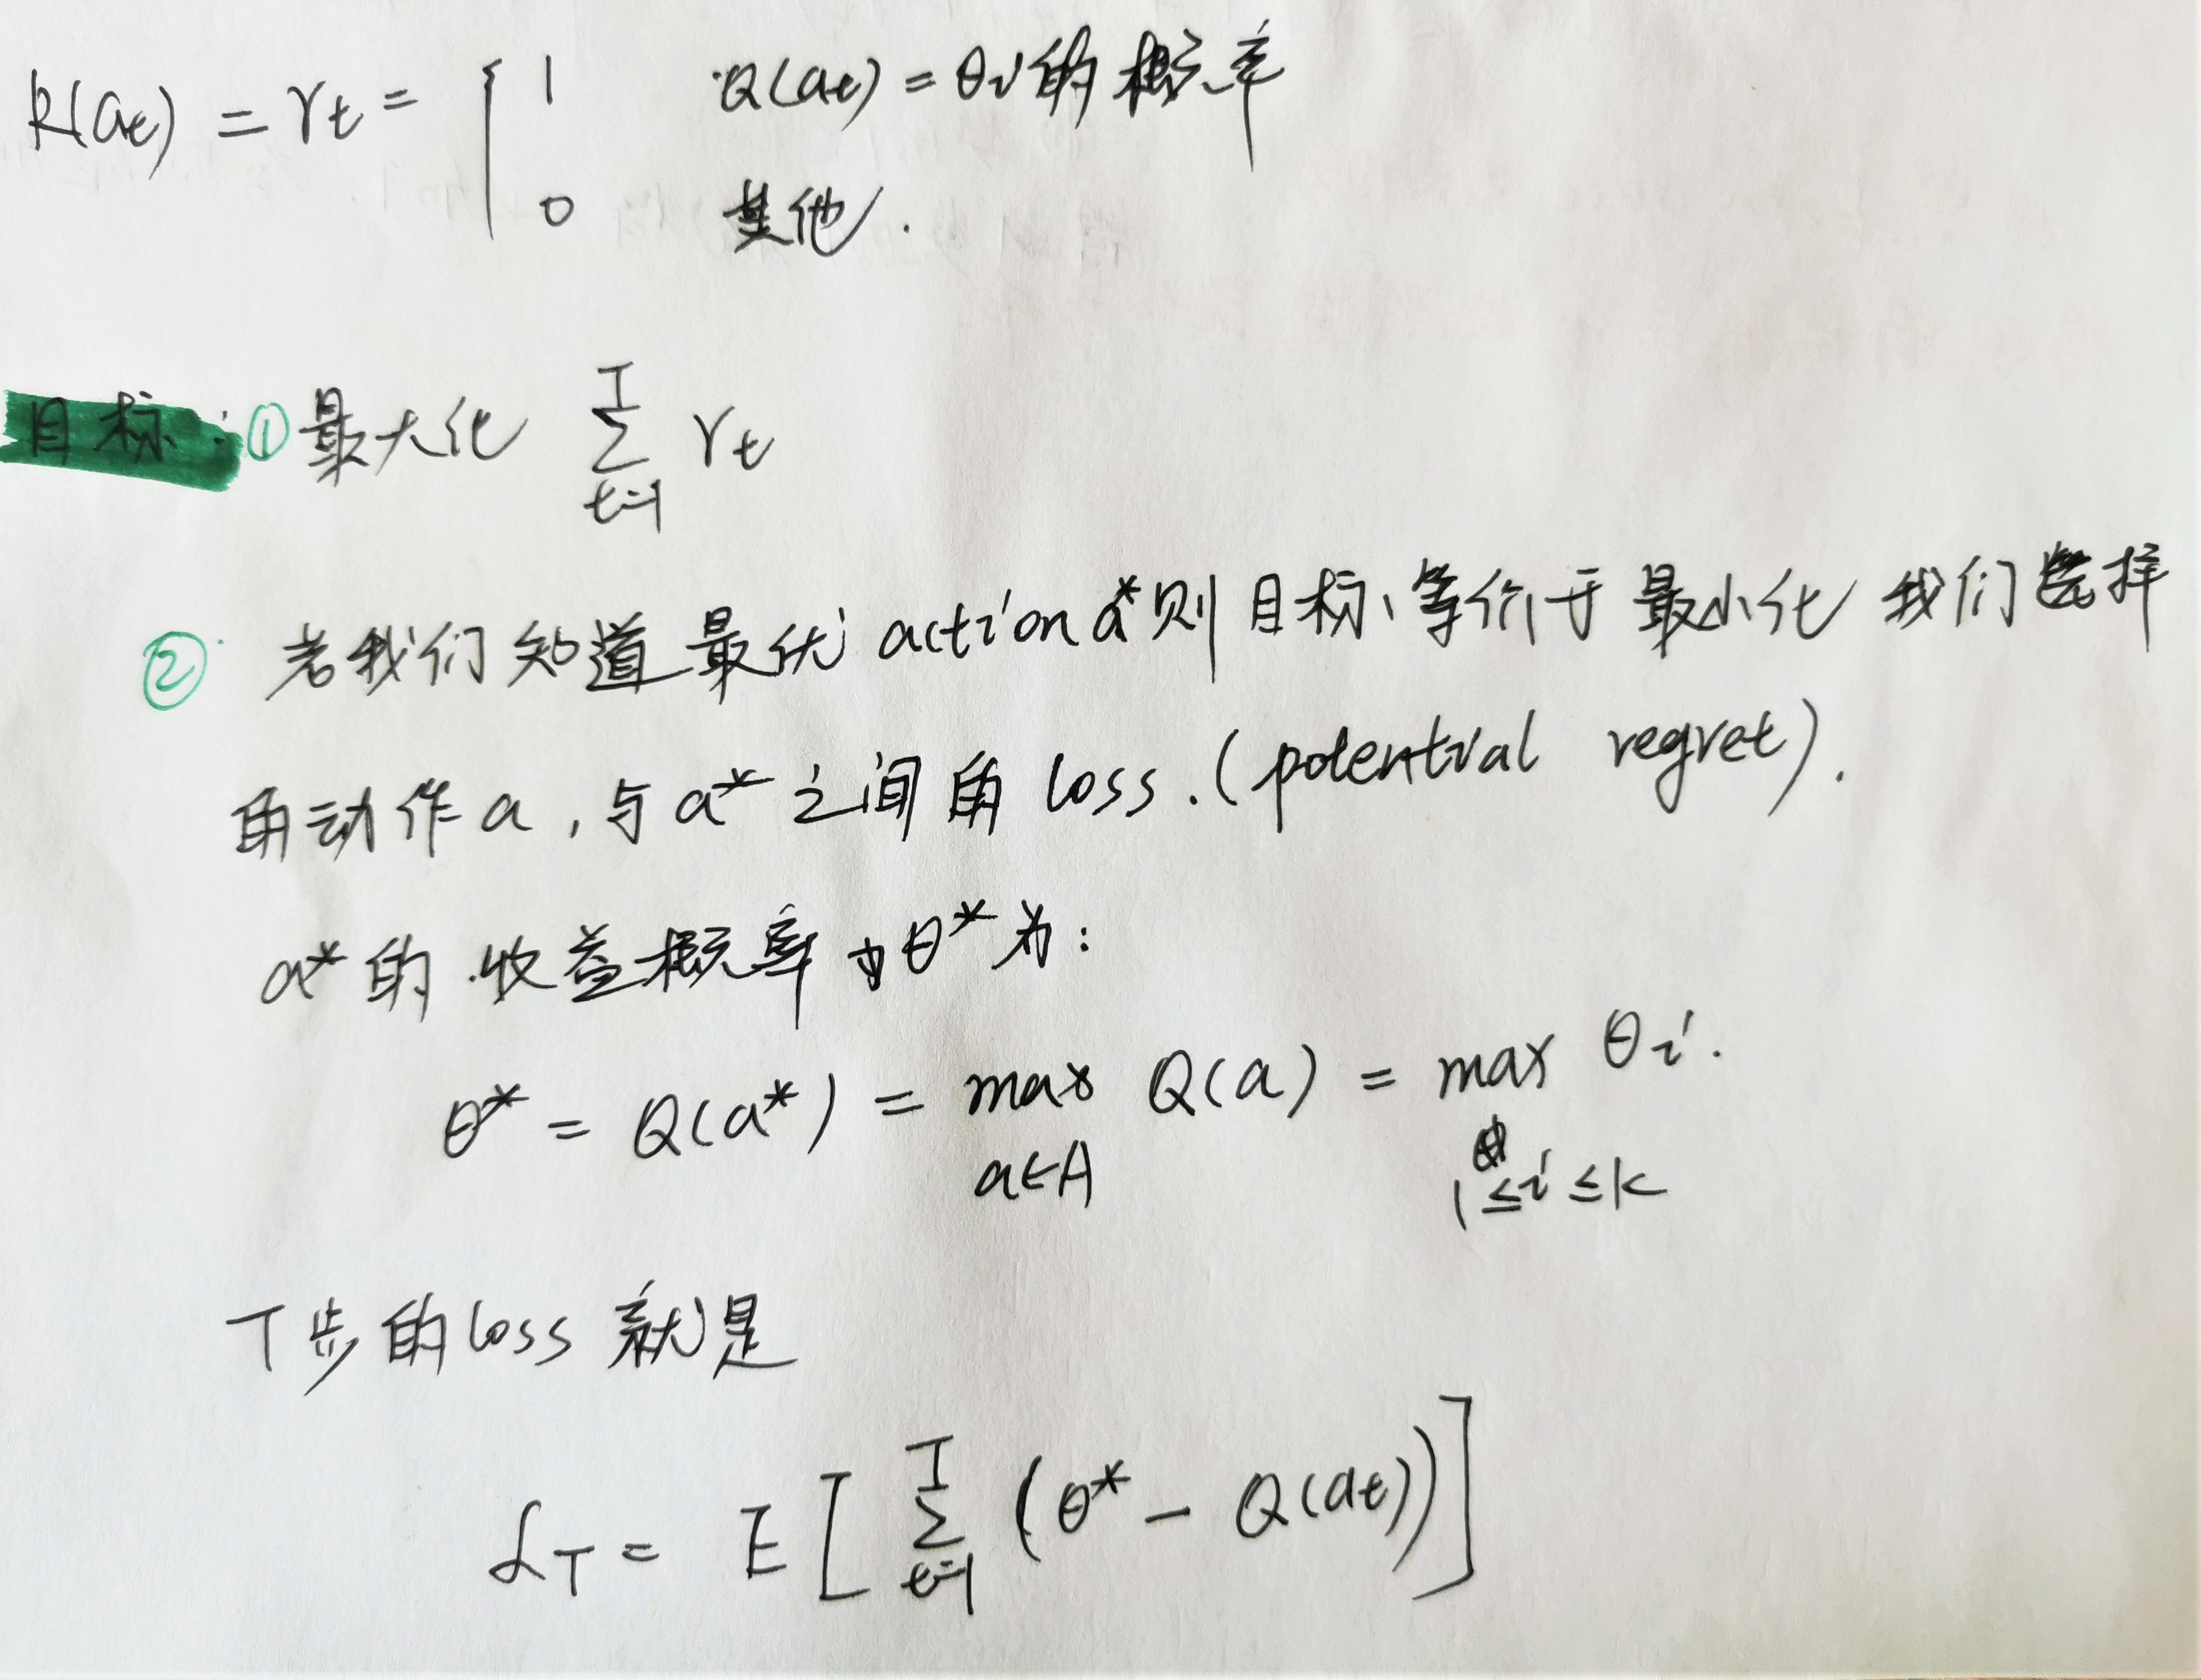 R(at) = rt = { 1 Q(at) = θi 的概率
0 其他.
目标: ① 最大化 T Σ t=1 rt
② 若我们知道最优 action a* 则目标等价于最小化 我们选择
的动作 a, 与 a* 之间的 loss. (potential regret).
a* 的收益概率 θ* 为:
θ* = Q(a*) = max Q(a) = max θi.
a∈A 1≤i≤K
T步的 loss 就是
ℒT = E [ T Σ t=1 (θ* - Q(at)) ]